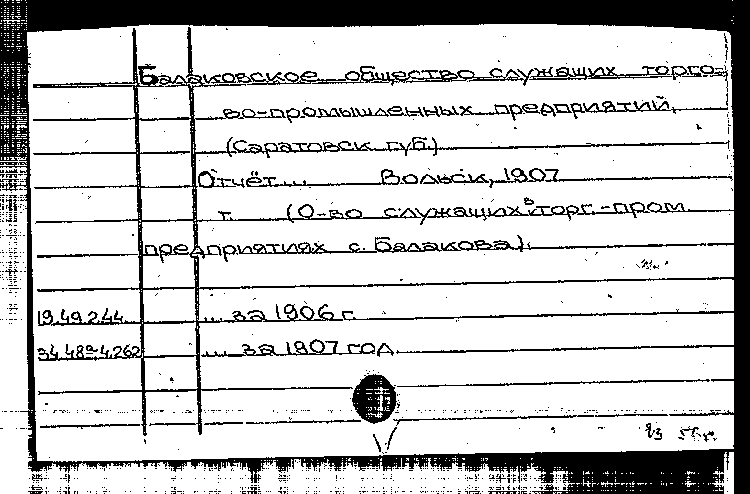 Балаковское общество служащих торго-
во-промышленных предприятий,
(Саратовск. губ.)
Отчёт... Вольск, 1907
т. (О-во служащих в торг.-пром.
предприятиях с. Балакова).
19.49.2.44. ... за 1906 г.
34.48а.4.262 ... за 1907 год.